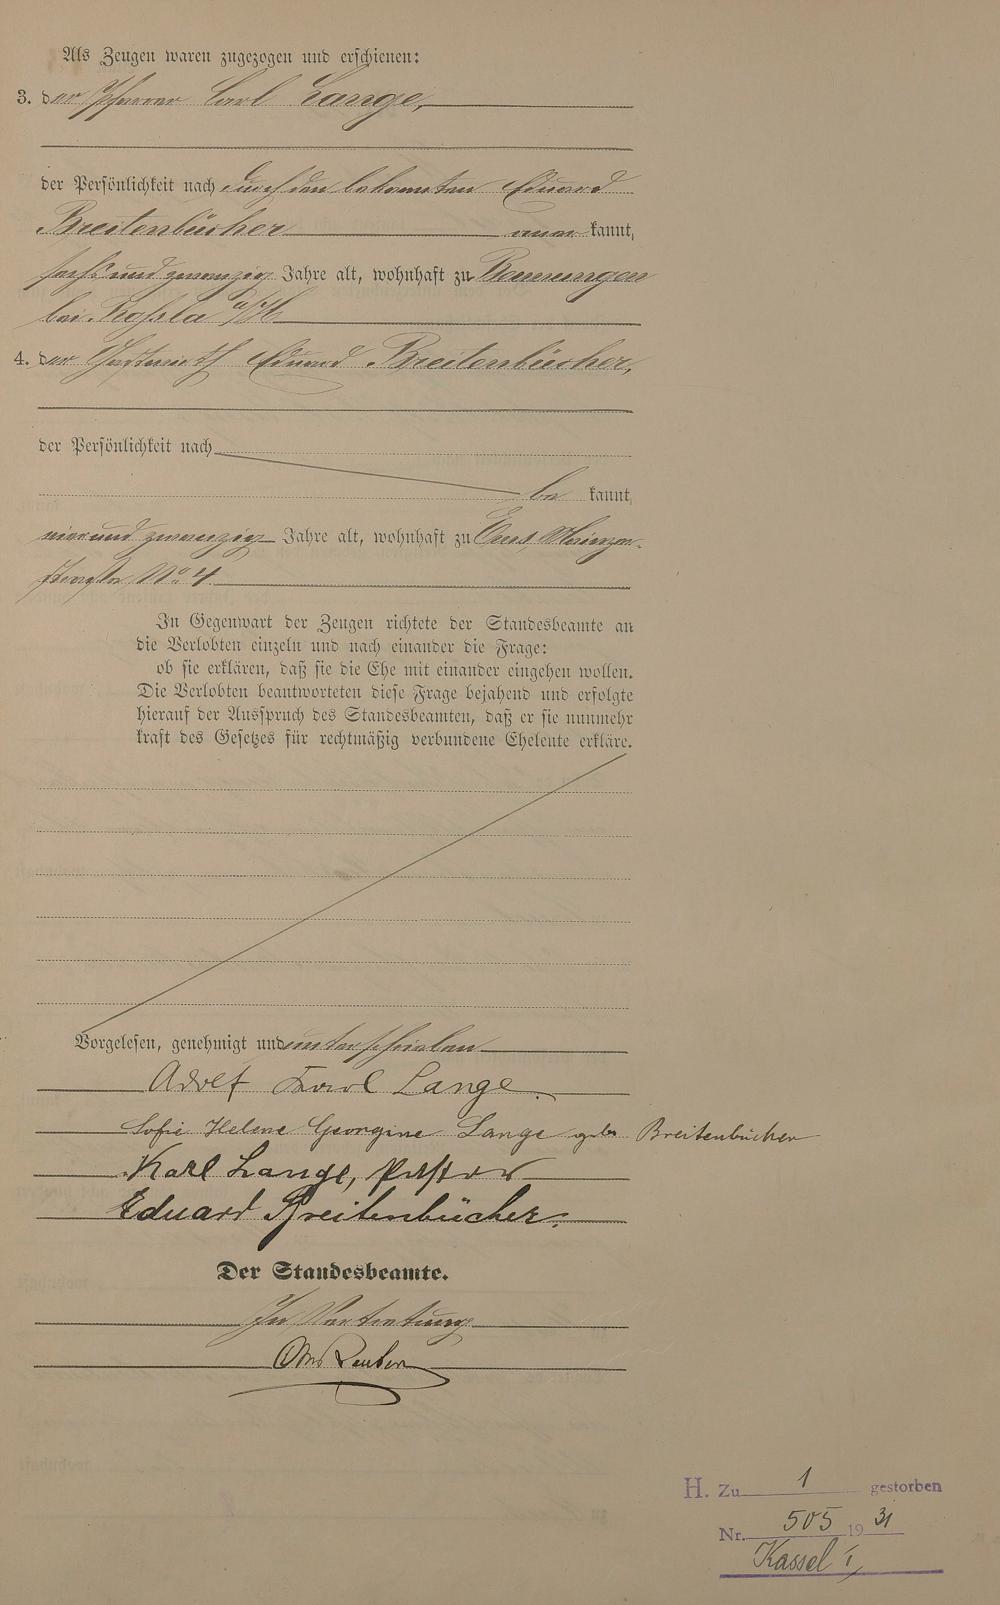 Als Zeugen waren zugezogen und erschienen:
3. der Pfarrer Carl Lange,
der Persönlichkeit nach durch den bekannten Eduard
Breitenbücher aner kannt,
sechs und zwanzig Jahre alt, wohnhaft zu Bennungen
bei Rossla a/H
4. der Gastwirth Eduard Breitenbücher,
der Persönlichkeit nach
be kannt,
vier und zwanzig Jahre alt, wohnhaft zu Ems, Mainzer-
straße No 4
In Gegenwart der Zeugen richtete der Standesbeamte an
die Verlobten einzeln und nach einander die Frage:
ob sie erklären, daß sie die Ehe mit einander eingehen wollen.
Die Verlobten beantworteten diese Frage bejahend und erfolgte
hierauf der Ausspruch des Standesbeamten, daß er sie nunmehr
kraft des Gesetzes für rechtmäßig verbundene Eheleute erkläre.
Vorgelesen, genehmigt und unterschrieben
Adolf Karl Lange.
Sofie Helene Georgine Lange geb. Breitenbücher
Karl Lange, Pastor
Eduard Breitenbücher.
Der Standesbeamte.
In Vertretung
H. Zu 1 gestorben
Nr. 505 1931
Kassel I,